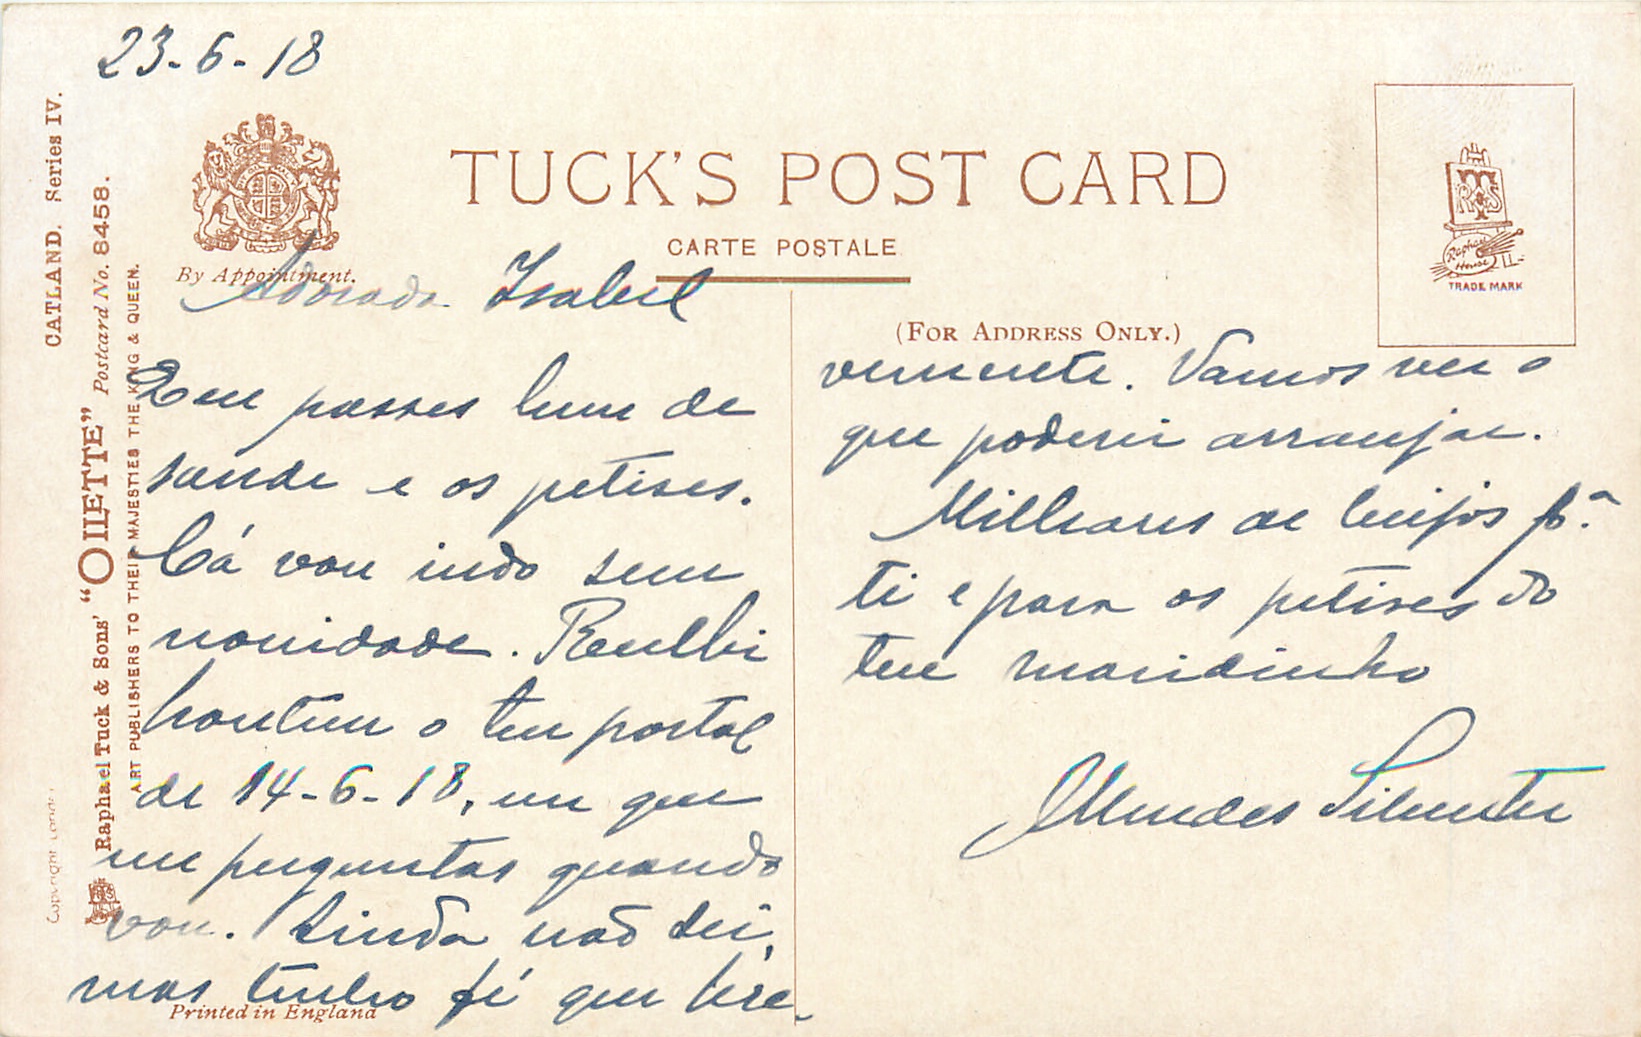 23-6-18
CATLAND. Series IV.
Raphael Tuck & Sons' "OILETTE" Postcard No. 8458.
ART PUBLISHERS TO THEIR MAJESTIES THE KING & QUEEN.
Copyright
By Appointment.
TUCK'S POST CARD
CARTE POSTALE
(FOR ADDRESS ONLY.)
RTS
Raphael
House
TRADE MARK
Adorada Isabel
Que passes bem de
saude e os petises.
Cá vou indo sem
novidade. Recebi
hontem o teu postal
de 14-6-18, em que
me perguntas quando
vou. Ainda não sei,
mas tenho fé que bre-
vemente. Vamos ver o
que poderei arranjar.
Milhares de beijos pª.
ti e para os petises do
teu maridinho
Mendes Silvestre
Printed in England